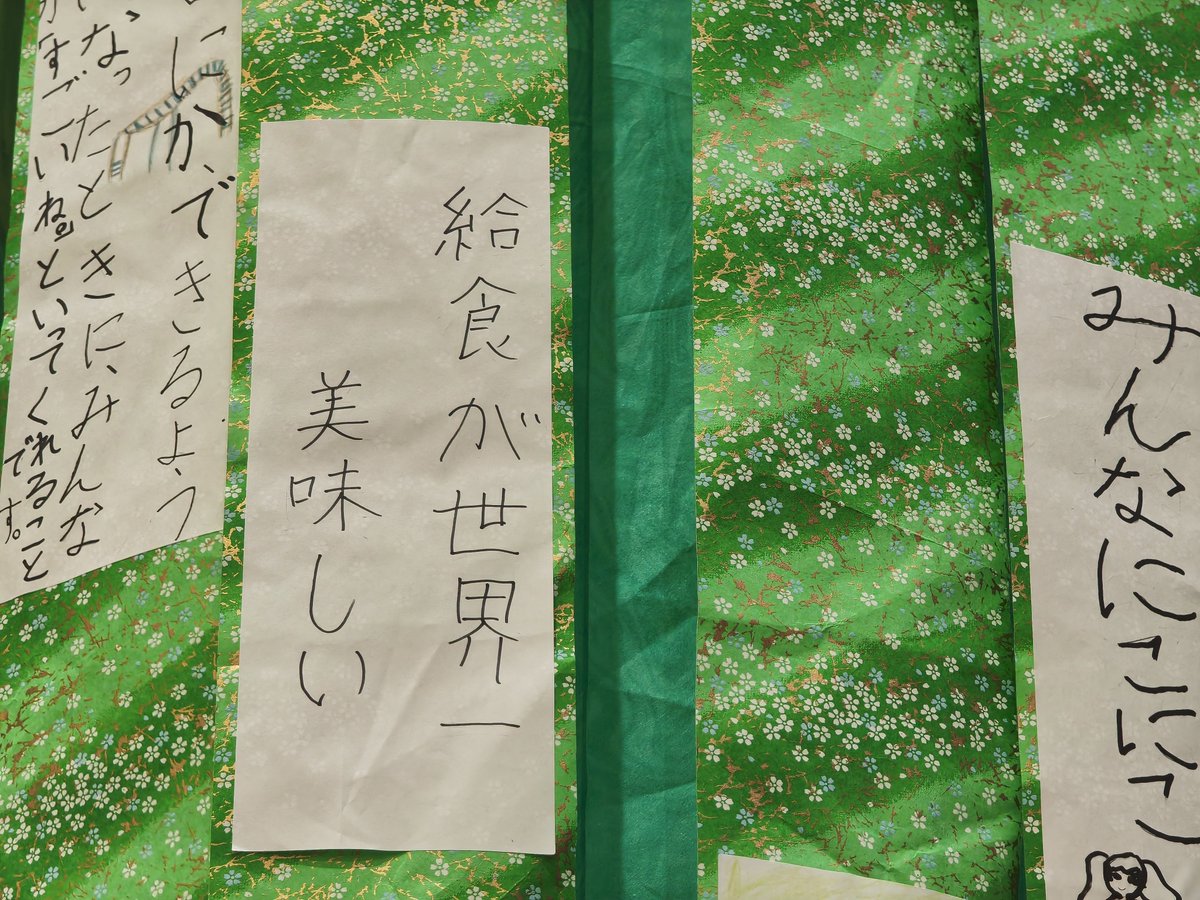 みんなにこにこ
給食が世界一
美味しい
にしか、できるよう
なったときに、みんな
すごいね」といってくれること
です。